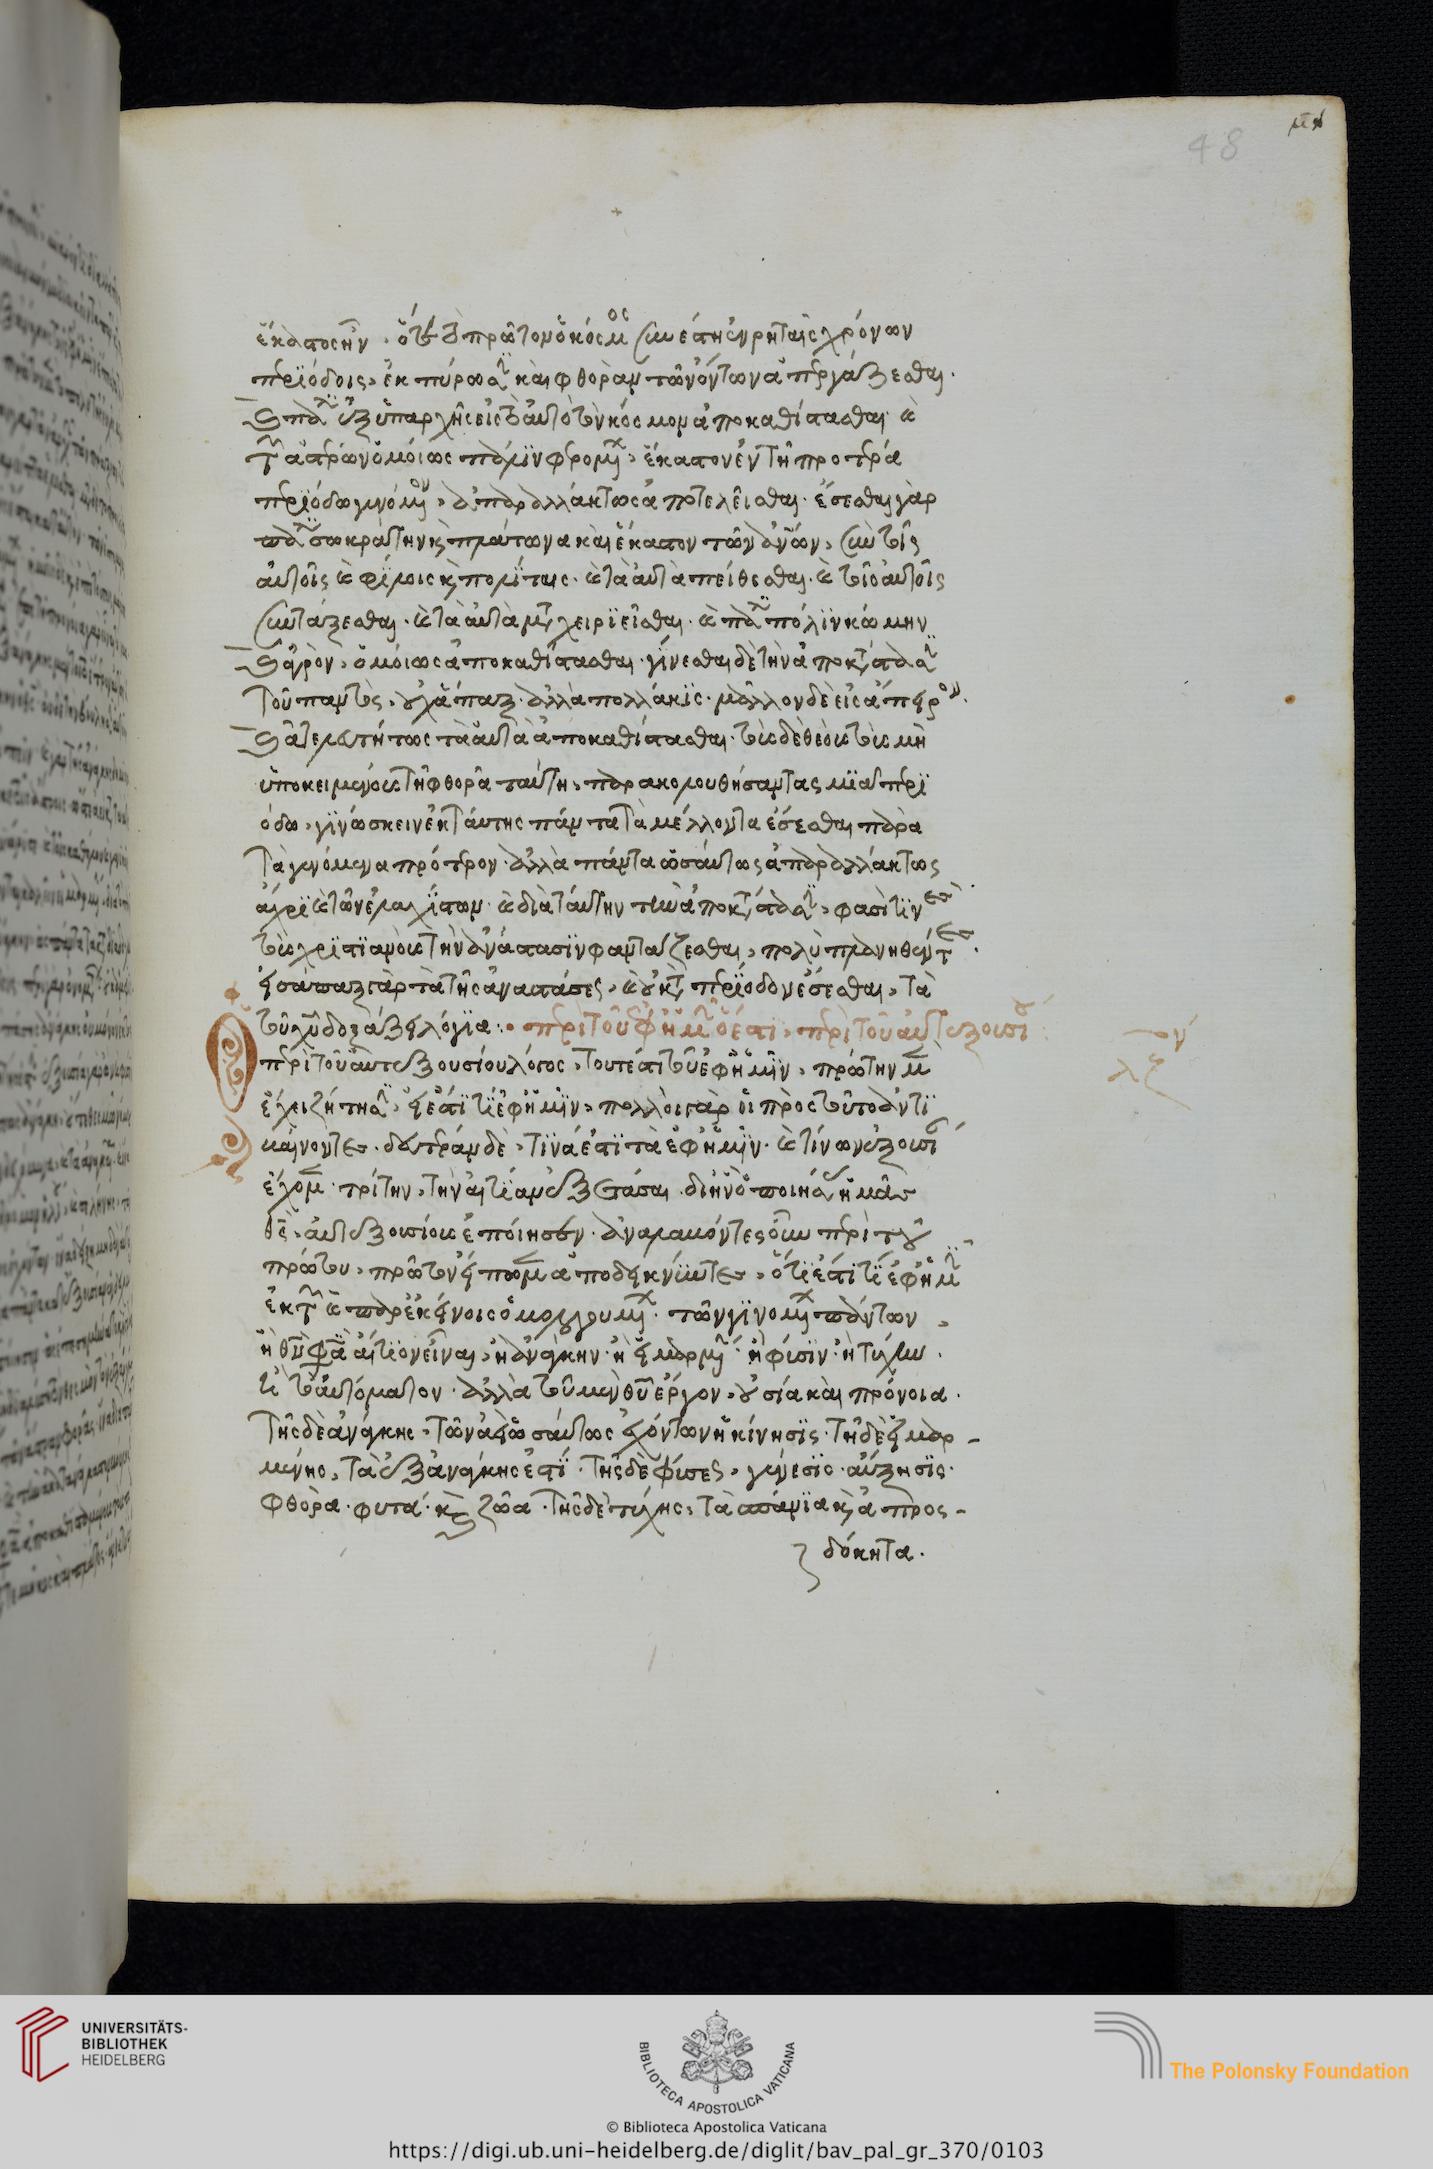 μη
48
ἕκαστος ἦν · ὅτε τὸ πρῶτον ὁ κόσμος συνέστη ἐν ῥηταῖς χρόνων
περιόδοις, ἐκπύρωσιν καὶ φθορὰν τῶν ὄντων ἀπεργάζεσθαι ·
καὶ πάλιν ἐξ ὑπαρχῆς εἰς τὸ αὐτὸ τὸν κόσμον ἀποκαθίστασθαι · καὶ
τῶν ἀστέρων ὁμοίως πάλιν φερομένων, ἕκαστον ἐν τῇ προτέρα
περιόδω γινόμενον, ἀπαραλλάκτως ἀποτελεῖσθαι · ἔσεσθαι γὰρ
πάλιν σωκράτην καὶ πλάτωνα καὶ ἕκαστον τῶν ἀνθρώπων, σὺν τοῖς
αὐτοῖς καὶ φίλοις καὶ πολίταις · καὶ τὰ αὐτὰ πείθεσθαι · καὶ τοῖς αὐτοῖς
συντάξεσθαι · καὶ τὰ αὐτὰ μεταχειριεῖσθαι · καὶ πᾶσαν πόλιν κώμην
καὶ ἀγρὸν, ὁμοίως ἀποκαθίστασθαι · γίνεσθαι δὲ τὴν ἀποκατάστασιν
τοῦ παντὸς, οὐχ ἅπαξ · ἀλλὰ πολλάκις · μᾶλλον δὲ εἰς ἄπειρον ·
καὶ ἀτελευτήτως τὰ αὐτὰ ἀποκαθίστασθαι · τοὺς δὲ θεοὺς τοὺς μὴ
ὑποκειμένους τῇ φθορᾶ ταύτη, παρακολουθήσαντας μιᾶ περι
όδω, γινώσκειν ἐκ ταύτης πάντα τὰ μέλλοντα ἔσεσθαι παρὰ
τὰ γενόμενα πρότερον · ἀλλὰ πάντα ὡσαύτως ἀπαραλλάκτως
ἄχρι καὶ τῶν ἐλαχίστων · καὶ διὰ ταύτην τὴν ἀποκατάστασιν, φασί τινες
τοὺς χριστιανοὺς τὴν ἀνάστασιν φαντάζεσθαι, πολὺ πλανηθέντες ·
εἰσάπαξ γὰρ τὰ τῆς ἀναστάσεως, καὶ οὐ κατὰ περίοδον ἔσεσθαι, τὰ
τοῦ χριστοῦ δοξάζει λόγια :· περὶ τοῦ ἐφ' ἡμῖν ὅ ἐστι, περὶ τοῦ αὐτεξουσίου :
λζον
Ὁ περὶ τοῦ αὐτεξουσίου λόγος, τουτέστι τοῦ ἐφ' ἡμῖν, πρώτην μὲν
ἔχει ζήτησιν, εἰ ἔστι τι ἐφ' ἡμῖν, πολλοὶ γὰρ οἱ πρὸς τοῦτο ἀντι
βαίνοντες · δευτέραν δὲ, τίνα ἐστὶ τὰ ἐφ' ἡμῖν · καὶ τίνων ἐξουσίαν
ἔχομεν · τρίτην, τὴν αἰτίαν ἐξετάσαι · δι' ἣν ὁ ποιήσας ἡμᾶς
θεὸς, αὐτεξουσίους ἐποίησεν · ἀναλαβόντες οὖν περὶ τοῦ
πρώτου, πρῶτον εἴπωμεν ἀποδεικνύντες, ὅτι ἐστί τι ἐφ' ἡμῖν
ἐκ τῶν καὶ παρ' ἐκείνοις ὁμολογουμένων · τῶν γινομένων πάντων,
ἢ θεόν φασιν αἴτιον εἶναι, ἢ ἀνάγκην · ἢ εἱμαρμένην · ἢ φύσιν · ἢ τύχην ·
ἢ τὸ αὐτόματον · ἀλλὰ τοῦ μὲν θεοῦ ἔργον, οὐσία καὶ πρόνοια ·
τῆς δὲ ἀνάγκης, τῶν ἀεὶ ὡσαύτως ἐχόντων ἡ κίνησις · τῆς δὲ εἱμαρ-
μένης, τὰ ἐξ ἀνάγκης ἐστί · τῆς δὲ φύσεως, γένεσις · αὔξησις ·
φθορὰ · φυτὰ · καὶ ζῶα · τῆς δὲ τύχης, τὰ σπάνια καὶ ἀπροσ-
δόκητα ·
UNIVERSITÄTS-
BIBLIOTHEK
HEIDELBERG
BIBLIOTECA APOSTOLICA VATICANA
© Biblioteca Apostolica Vaticana
The Polonsky Foundation
https://digi.ub.uni-heidelberg.de/diglit/bav_pal_gr_370/0103